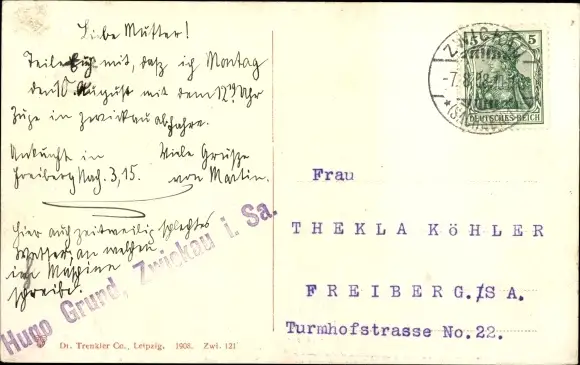 Liebe Mutter!
Teile Euch mit, daß ich Montag
den 10. August mit dem 12 19 Uhr
Zuge in Zwickau abfahre.
Ankunft in
Freiberg Nach. 3,15.
Viele Grüße
von Martin.
Hier auch zeitweilig schlechtes
Wetter, an welchen
ich Maschine
schreibe.
Hugo Grund, Zwickau i. Sa.
Dr. Trenkler Co., Leipzig. 1908. Zwi. 121
ZWICKAU
5
DEUTSCHES REICH
Frau
THEKLA KöHLER
FREIBERG./SA.
Turmhofstrasse No.22.